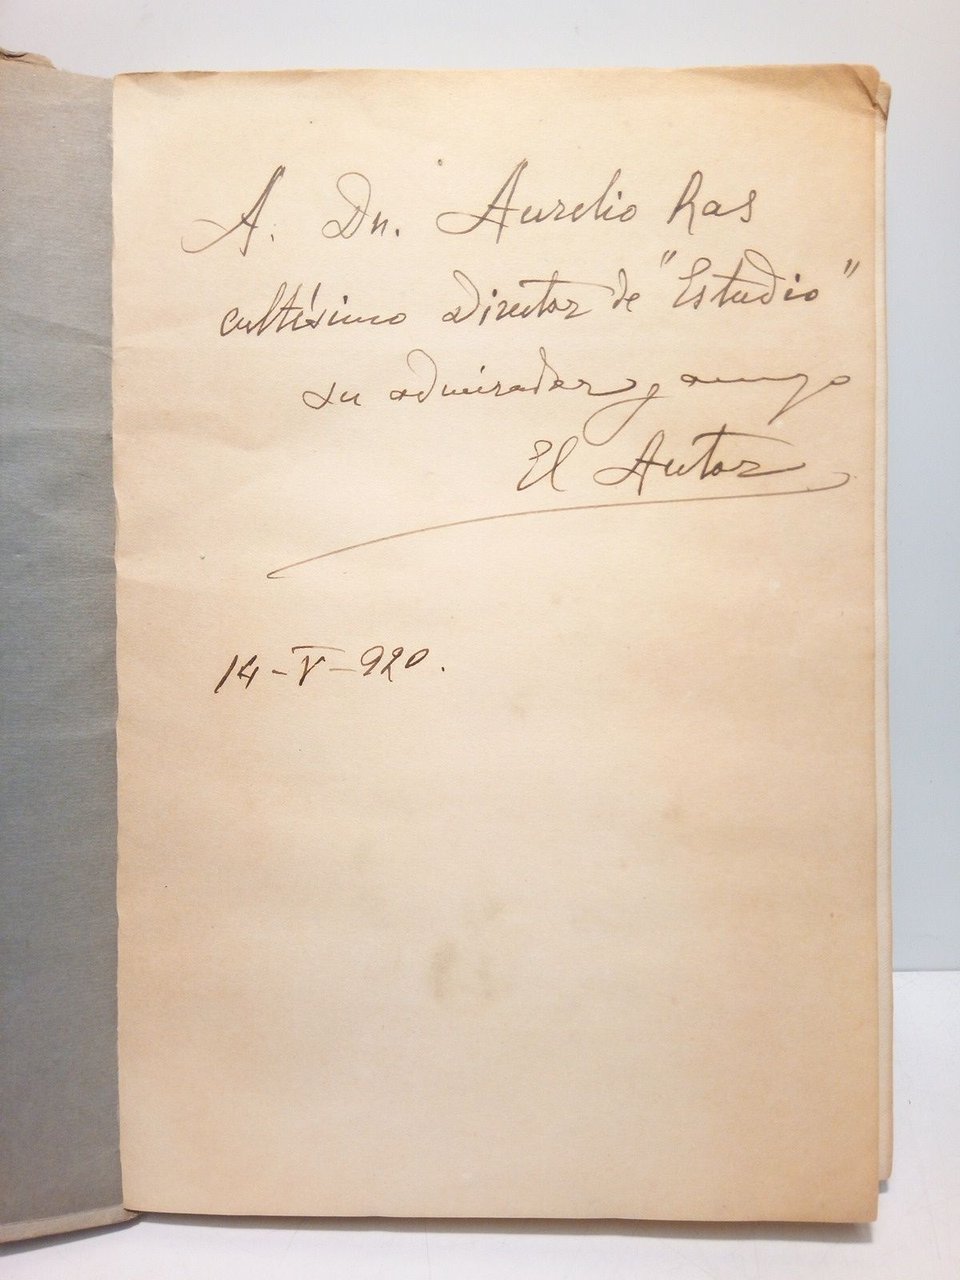 A. Dn. Aurelio Ras
cultísimo Director de "Estudio"
su admirador y amigo
El Autor
14-V-920.